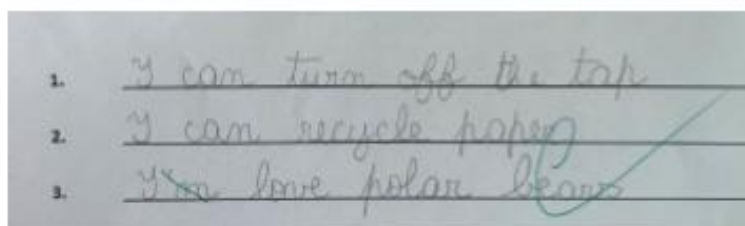 1. I can turn off the tap
2. I can recycle paper
3. I'm love polar bears